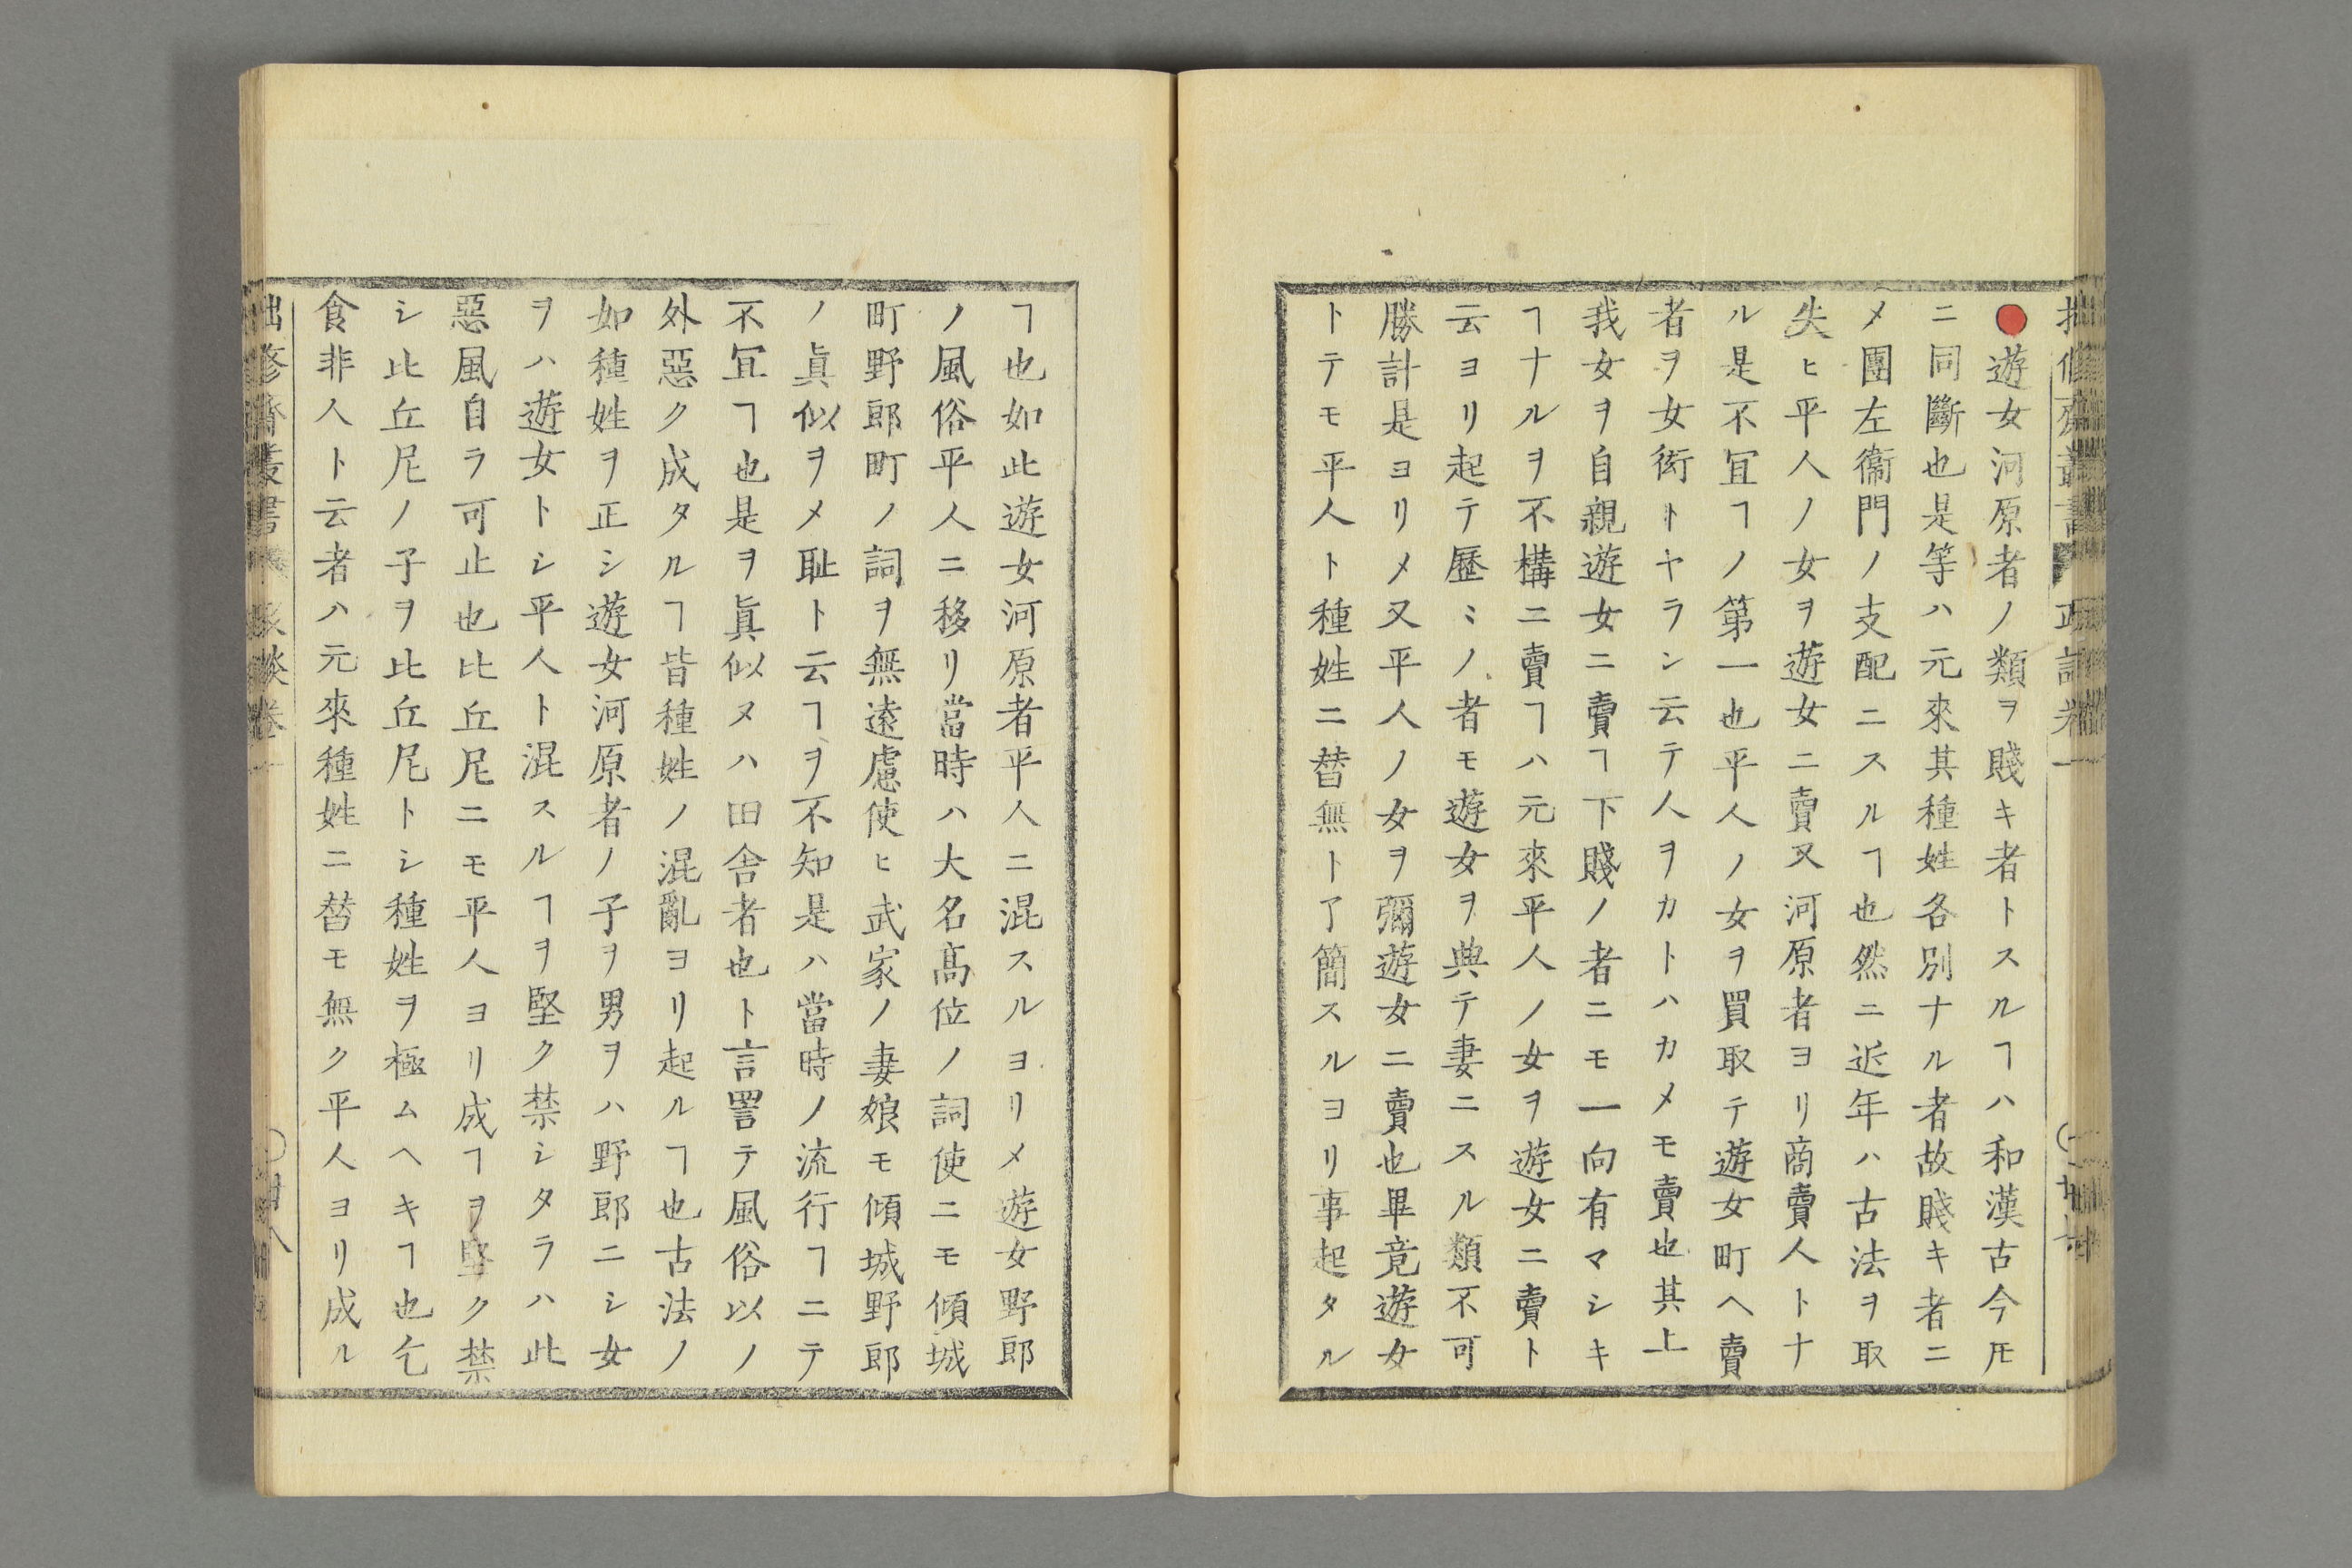 遊女河原者ノ類ヲ賤キ者トスルヿハ和漢古今𪜈
ニ同斷也是等ハ元來其種姓各別ナル者故賤キ者ニ
メ團左衞門ノ支配ニスルヿ也然ニ近年ハ古法ヲ取
失ヒ平人ノ女ヲ遊女ニ賣又河原者ヨリ商賣人トナ
ル是不冝ヿノ第一也平人ノ女ヲ買取テ遊女町ヘ賣
者ヲ女衒トヤラン云テ人ヲカトハカメモ賣也其上
我女ヲ自親遊女ニ賣ヿ下賤ノ者ニモ一向有マシキ
ヿナルヲ不構ニ賣ヿハ元來平人ノ女ヲ遊女ニ賣ト
云ヨリ起テ歷〻ノ者モ遊女ヲ典テ妻ニスル類不可
勝計是ヨリメ又平人ノ女ヲ彌遊女ニ賣也畢竟遊女
トテモ平人ト種姓ニ替無ト了簡スルヨリ事起タル
ヿ也如此遊女河原者平人ニ混スルヨリメ遊女野郎
ノ風俗平人ニ移リ當時ハ大名髙位ノ詞使ニモ傾城
町野郎町ノ詞ヲ無遠慮使ヒ武家ノ妻娘モ傾城野郎
ノ眞似ヲメ耻ト云ヿヲ不知是ハ當時ノ流行ヿニテ
不冝ヿ也是ヲ眞似ヌハ田舎者也ト言詈テ風俗以ノ
外惡ク成タルヿ皆種姓ノ混亂ヨリ起ルヿ也古法ノ
如種姓ヲ正シ遊女河原者ノ子ヲ男ヲハ野郎ニシ女
ヲハ遊女トシ平人ト混スルヿヲ堅ク禁シタラハ此
惡風自ラ可止也比丘尼ニモ平人ヨリ成ヿヲ堅ク禁
シ比丘尼ノ子ヲ比丘尼トシ種姓ヲ極ムヘキヿ也乞
食非人ト云者ハ元來種姓ニ替モ無ク平人ヨリ成ル